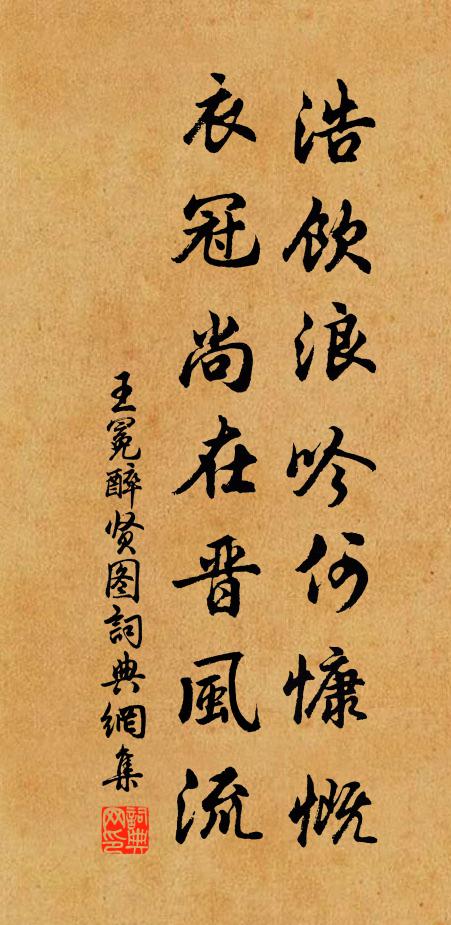 浩饮浪吟何慷慨
衣冠尚在晋風流
王冕醉贤图詞典網集
詞典網印